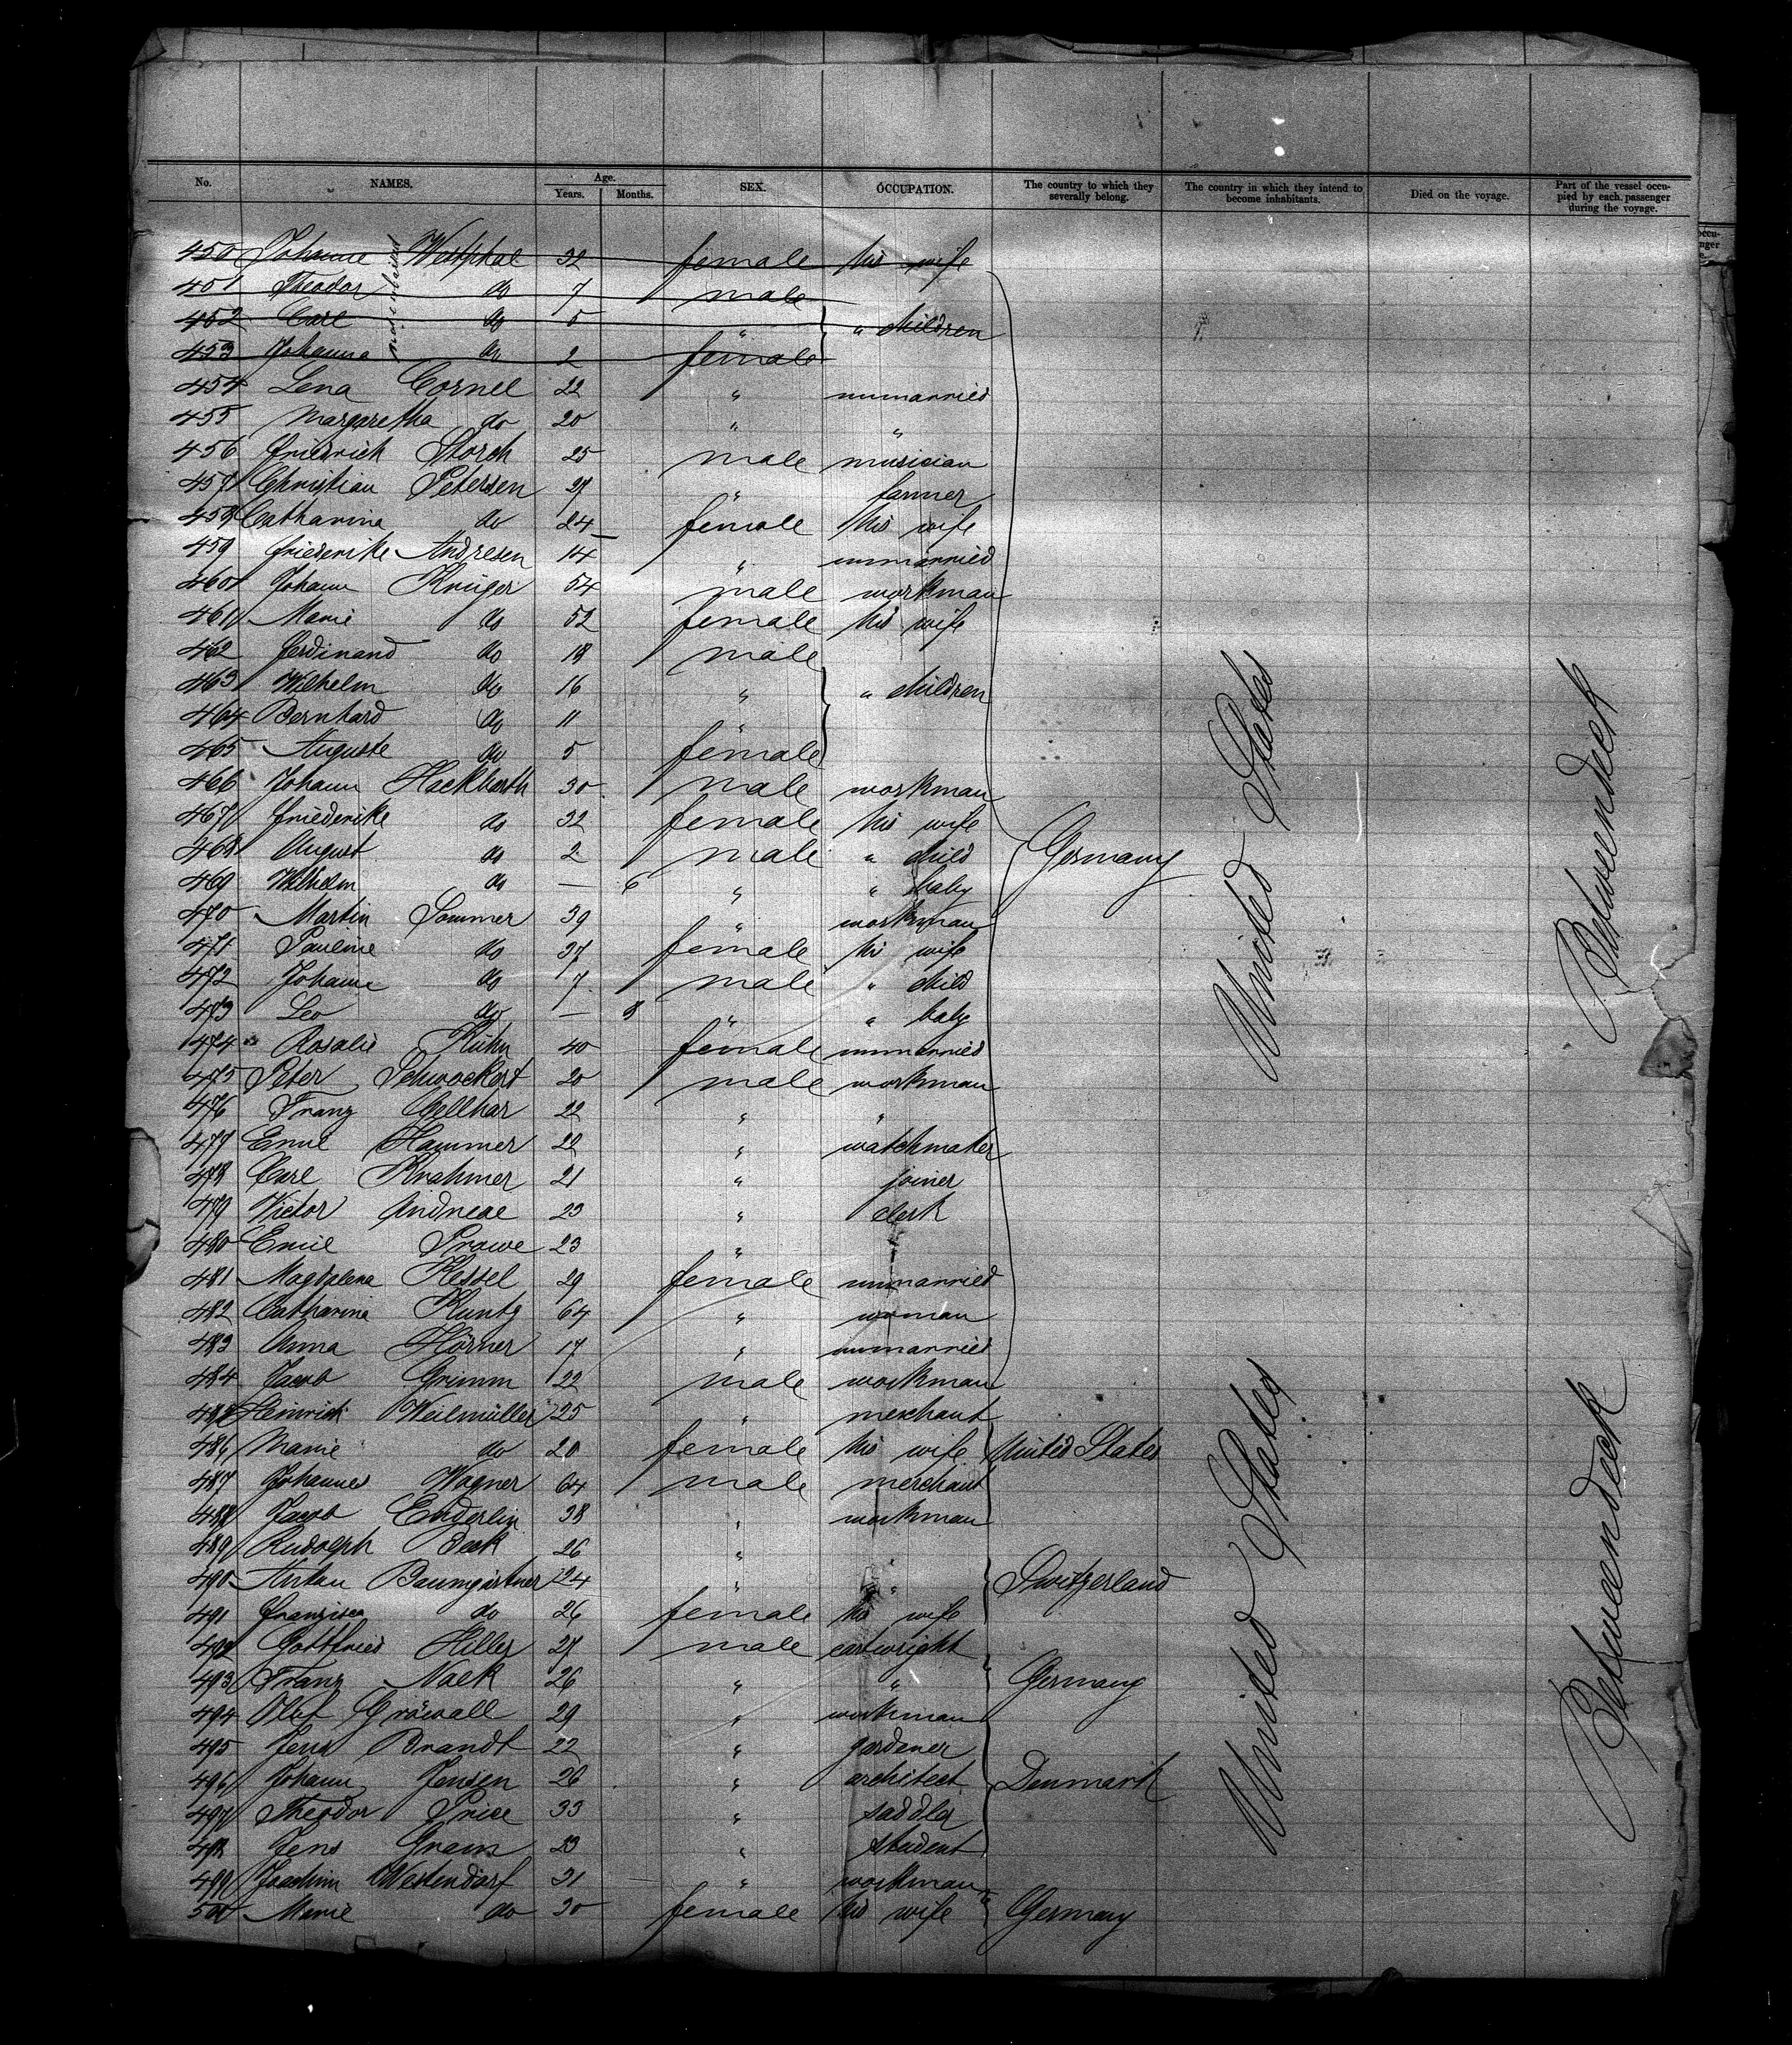 No. NAMES. Age. Years. Months. SEX. OCCUPATION. The country to which they severally belong. The country in which they intend to become inhabitants. Died on the voyage. Part of the vessel occupied by each passenger during the voyage.
450 Johanne Westphal 32 female his wife
451 Theodor do 7 male
452 Carl do 5 " " children
453 Johanna do 2 female
454 Lena Cornel 22 " unmarried
455 Margaretha do 20 " "
456 Friedrich Storch 25 male musician
457 Christian Petersen 27 " farmer
458 Catharina do 24 female his wife
459 Friederike Andresen 14 " unmarried
460 Johann Krüger 54 male workman
461 Marie do 52 female his wife
462 Ferdinand do 18 male
463 Wilhelm do 16 " " children
464 Bernhard do 11 "
465 Auguste do 5 female
466 Johann Hackbarth 30 male workman
467 Friederike do 32 female his wife
468 August do 2 male " child Germany
469 Wilhelm do — 6 " " baby
470 Martin Sommer 39 " workman
471 Pauline do 37 female his wife
472 Johann do 7 male " child
473 Leo do — 8 " " baby
474 Rosalie Kühn 40 female unmarried
475 Peter Schwockert 20 male workman
476 Franz Gellhar 22 " "
477 Emil Hammer 22 " watchmaker
478 Carl Krahmer 21 " joiner
479 Victor Andreae 23 " clerk
480 Emil Prowe 23 "
481 Magdalena Kessel 29 female unmarried
482 Catharina Kuntz 64 " woman
483 Anna Hörner 17 " unmarried
484 Jacob Grimm 22 male workman
485 Heinrich Weilmüller 25 " merchant
486 Marie do 20 female his wife United States
487 Johannes Wagner 64 male merchant
488 Jacob Enderlin 38 " workman
489 Rudolph Beck 26 "
490 Anton Baumgärtner 24 " " Switzerland
491 Franzisca do 26 female his wife
492 Gottfried Hiller 27 male cartwright
493 Franz Nack 26 " " Germany
494 Olof Gröwall 29 " workman
495 Jens Brandt 22 " gardener
496 Johann Jensen 26 " architect Denmark
497 Theodor Price 33 " saddler
498 Jens Gram 23 " student
499 Joachim Westendorf 31 " workman
500 Marie do 30 female his wife Germany
United States
United States
Betweendeck
Betweendeck